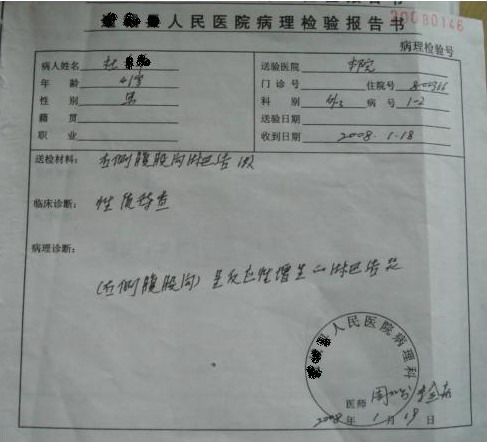 人民医院病理检验报告书 20080146
病理检验号
病人姓名 杜 送验医院 本院
年龄 41岁 门诊号 住院号
性别 男 科别 外 病号 1-2
籍贯 送验日期
职业 收到日期 2008.1.18
送检材料: 右侧腹股沟淋巴结
临床诊断: 性质待查
病理诊断:
(右侧腹股沟)呈反应性增生 淋巴结
人民医院病理科
医师
2008年1月19日